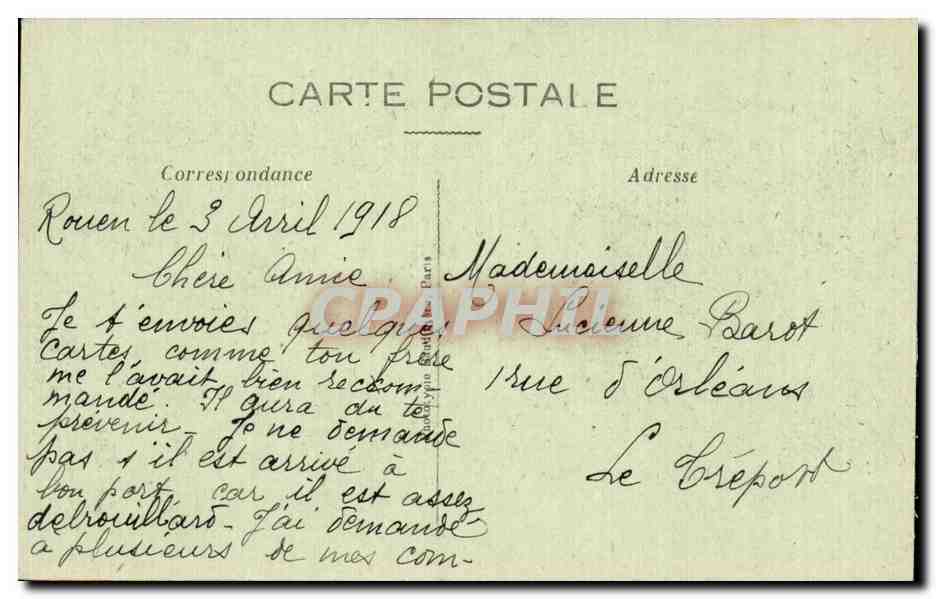 CARTE POSTALE
Correspondance
Adresse
Rouen le 3 Avril 1918
Chère Amie
Je t'envoies quelques
cartes, comme ton frère
me l'avait bien reckom
mandé. Il aura du te
prévenir. Je ne demande
pas s'il est arrivé à
bon port, car il est assez
débrouillard. J'ai demandé
à plusieurs de mes com-
Mademoiselle
Lucienne Barot
1 rue d'Orléans
Le Tréport
Paris
CPAPHIL